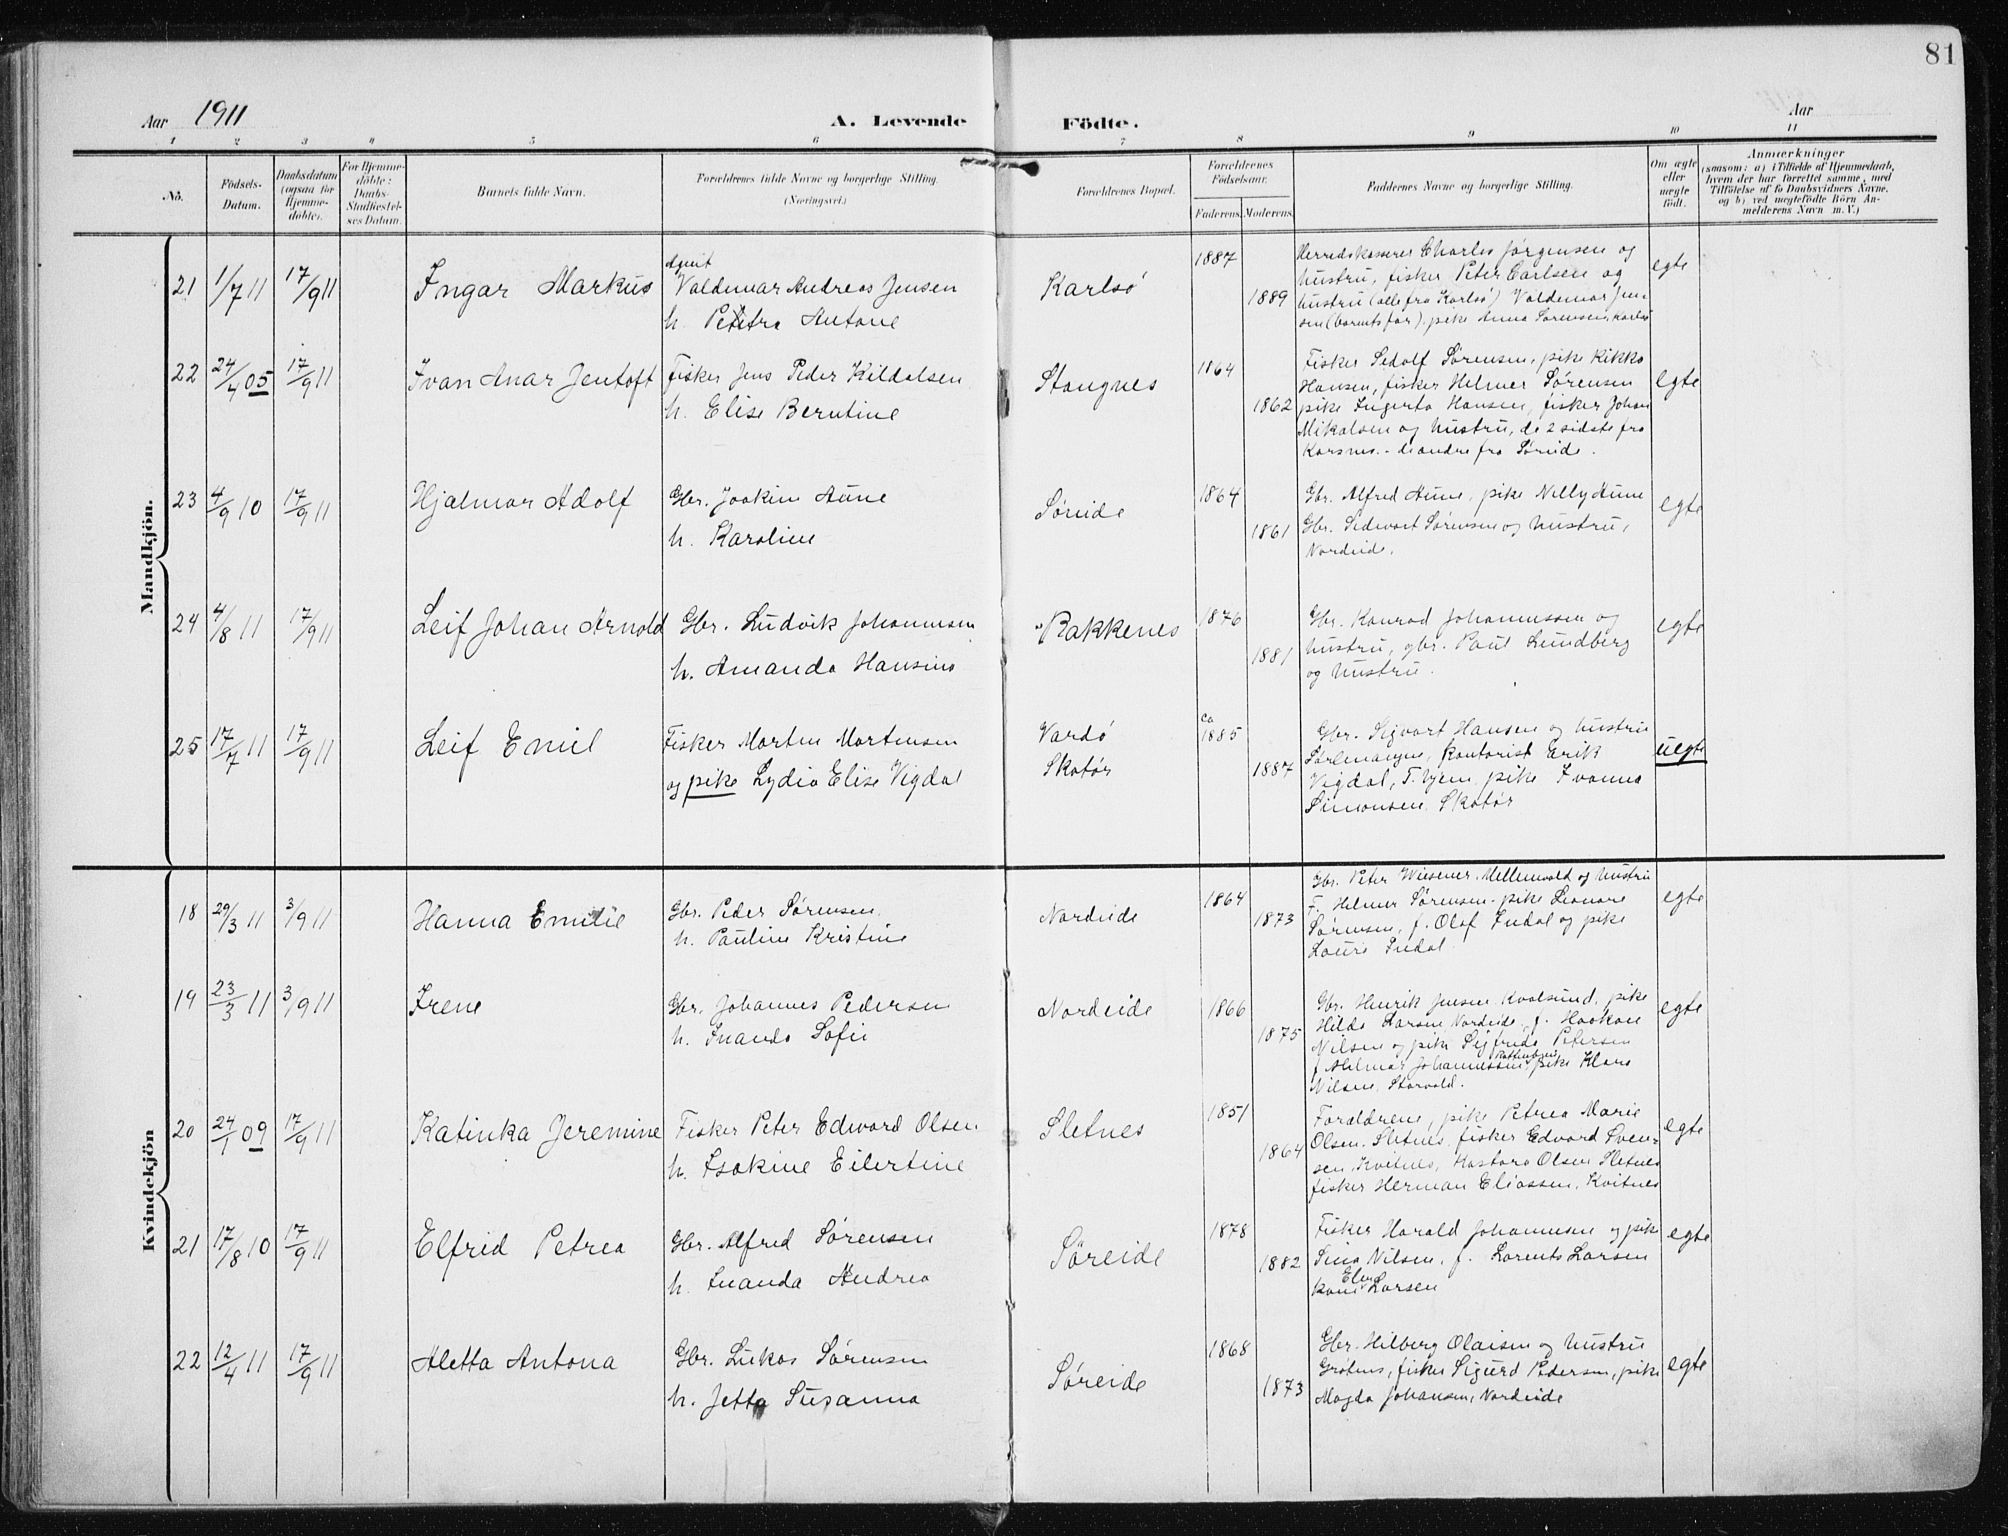 81
Aar 1911
A. Levende Födte.
Aar
1 2 3 4 5 6 7 8 9 10 11
No.
Födsels-
Datum.
Daabsdatum
(ogsaa for
Hjemme-
döbte).
For Hjemme-
döbte:
Daabs-
Stadfæstel-
ses Datum.
Barnets fulde Navn.
Forældrenes fulde Navne og borgerlige Stilling.
(Næringsvei.)
Forældrenes Bopæl.
Forældrenes
Födselsaar.
Faderens. Moderens.
Faddernes Navne og borgerlige Stilling.
Om ægte
eller
uægte
født.
Anmærkninger
(saasom: a) i Tilfælde af Hjemmedaab,
hvem der har forrettet samme, med
Tilföielse af to Daabsvidners Navne.
og b) ved uægtefödte Börn An-
melderens Navn m. V.)
Mandkjön.
21 1/7 11 17/9 11 Ingar Markus
Agent
Valdemar Andreas Jensen
h. Petra Antone
Karlsö 1887 1889
Herredskasserer Charles Jørgensen og
hustru, fisker Peter Carlsen og
hustru (alle fra Karlsö) Valdemar Jen-
sen (barnets far). pike Anna Sørensen, Karlsö
egte
22 24/4 05 17/9 11 Ivan Anar Jentoft
Fisker Jens Peder Kildalsen
h. Elise Berntine
Stangnes 1864 1862
Fisker Sedolf Sørensen, pike Kikko
Hansen, fisker Helmer Sørensen
pike Ingerta Hansen, fisker Johan
Mikalsen og hustru, de 2 sidste fra
Korsnes. - de andre fra Søreide.
egte
23 4/9 10 17/9 11 Hjalmar Adolf
Gbr. Joakim Aune
h. Karoline
Søreide 1864 1861
Gbr. Alfred Aune, pike Nelly Aune
Gbr. Sedvart Sørensen og hustru,
Nordeide.
egte
24 4/8 11 17/9 11 Leif Johan Arnold
Gbr. Ludvik Johannesen
h. Amanda Hansine
Bakkenes 1876 1881
Gbr. Konrad Johannessen og
hustru, gbr. Paul Lundberg
og hustru.
egte
25 17/7 11 17/9 11 Leif Emil
Fisker Morten Mortensen
og pike Lydia Elise Vigdal
Vardø
Skatør
ca
1885 1887
Gbr. Sigvart Hansen og hustru
kontorist Erik
Vigdal, pike Ivanna
Simonsen, Skatør
uegte
Kvindekjön
18 29/3 11 3/9 11 Hanna Emilie
Gbr. Peder Sørensen
h. Pauline Kristine
Nordeide 1864 1873
Gbr. Peter Wiesener, Mellemvold og hustru
F. Helmer Sørensen, pike Leonore
Sørensen, f. Olaf Indal og pike
Laura Indal
egte
19 23/3 11 3/9 11 Irene
Gbr. Johannes Pedersen
h. Inanda Sofie
Nordeide 1866 1875
Gbr. Henrik Jensen Kvalsund, pike
Hilda Larsen, Nordeide, f. Haakon
Nilsen og pike Sigfrida Petersen
f. Hilmar Johannessen, pike Klara
Nilsen, Storvold.
egte
20 24/1 09 17/9 11 Katinka Jeremine
Fisker Peter Edvard Olsen
h. Isakine Eilertine
Sletnes 1851 1864
Forældrene, pike Petrea Marie
Olsen, Sletnes, fisker Edvard Sven-
sen, Kvitnes, Kastara Olsen Sletnes
fisker Herman Eliassen, Kvitnes
egte
21 17/8 10 17/9 11 Elfrid Petrea
Gbr. Alfred Sørensen
h. Inanda Andrea
Søreide 1878 1882
Fisker Harald Johannesen og pike
Sina Nilsen, f. Lorents Larsen
kone Elen Larsen
egte
22 12/4 11 17/9 11 Aletta Antona
Gbr. Lukas Sørensen
h. Jetta Susanna
Søreide 1868 1873
Gbr. Hilberg Olaisen og hustru
Grøtnes, fisker Sigurd Pedersen, pike
Magda Johansen, Nordeide
egte